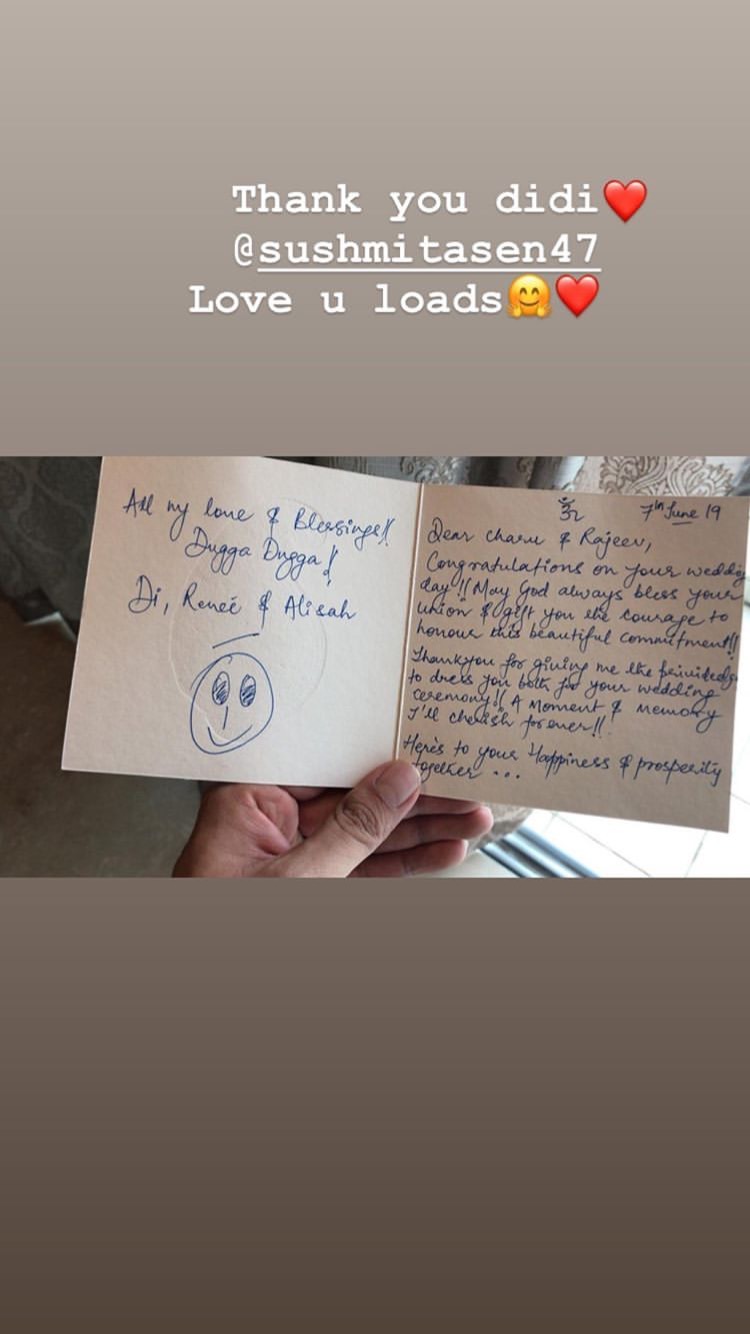 Thank you didi❤️
@sushmitasen47
Love u loads🤗❤️
All my love & Blessings!!
Dugga Dugga!
Di, Reneé & Alisah
ॐ 7th June 19
Dear Charu & Rajeev,
Congratulations on your wedding
day!! May God always bless your
union & gift you the courage to
honour this beautiful commitment!!
Thankyou for giving me the
to dress you both for your wedding
ceremony!! A Moment & memory
I'll cherish forever!!
Here's to your Happiness & prosperity
together ...